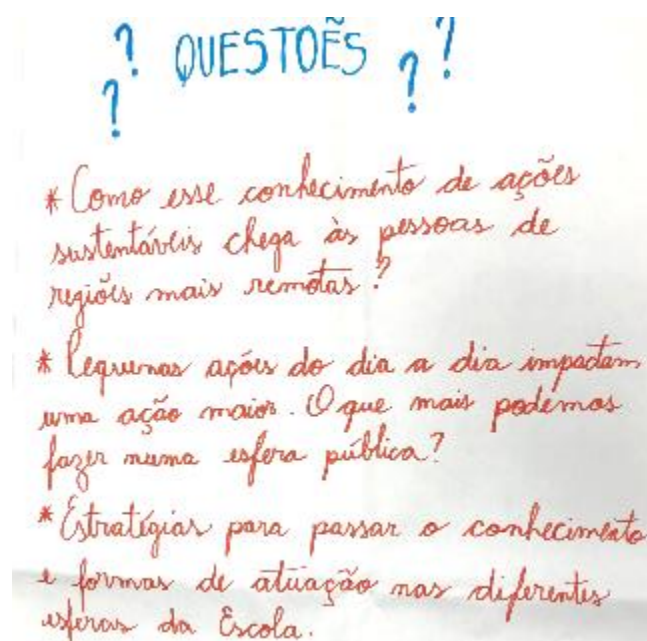 ? ? QUESTOẼS ? ?
* Como esse conhecimento de ações
sustentáveis chega às pessoas de
regiões mais remotas?
* Pequenas ações do dia a dia impactam
uma ação maior. O que mais podemos
fazer numa esfera pública?
* Estratégias para passar o conhecimento
e formas de atuação nas diferentes
esferas da Escola.